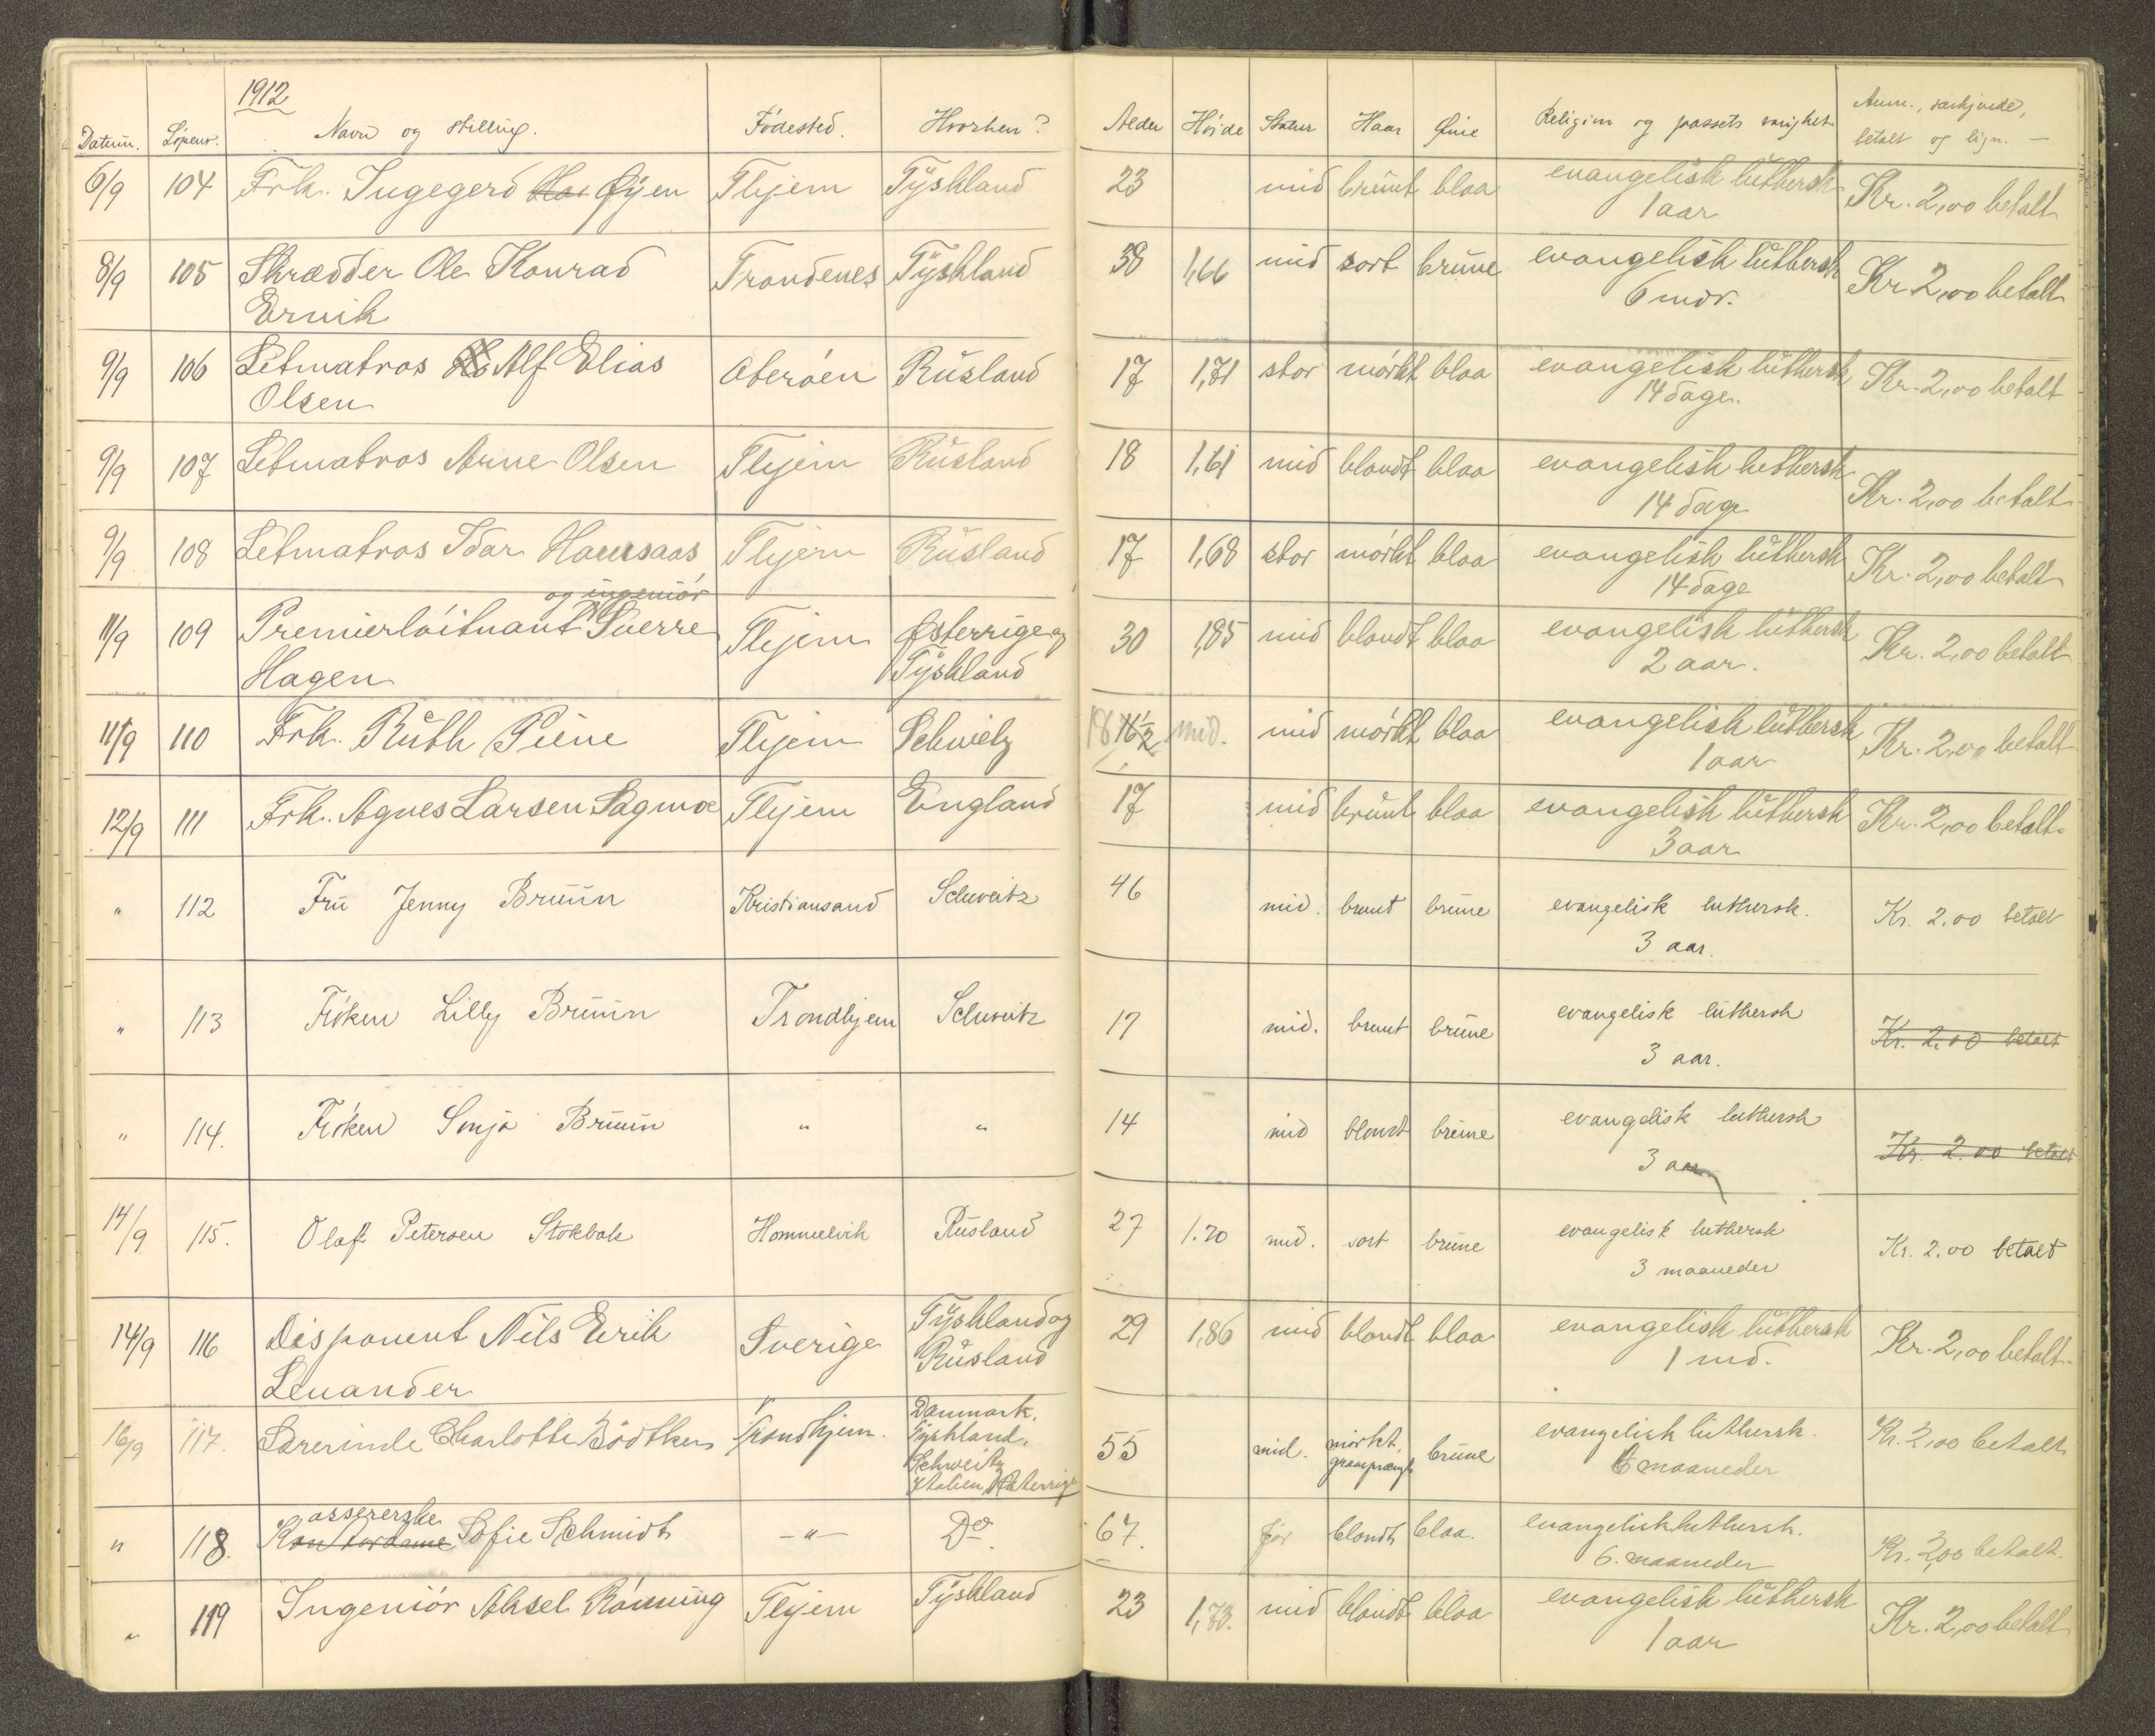 1912
Datum. Löpenr. Navn og stilling. Födested. Hvorhen? Alder Höide Statur Haar Øine Religion og passets varighet Anm., særkjende, betalt og lign. —
6/9 104 Frk. Ingegerd Øyen Thjem Tyskland 23 mid brunt blaa evangelisk luthersk Kr. 2,00 betalt
1 aar
8/9 105 Skrædder Ole Konrad Trondenes Tyskland 38 1,66 mid sort brune evangelisk luthersk Kr 2,00 betalt
Ervik 6 mdr.
9/9 106 Letmatros Alf Elias Oterøen Rusland 17 1,71 stor mörkt blaa evangelisk luthersk Kr. 2,00 betalt
Olsen 14 dage.
9/9 107 Letmatros Arne Olsen Thjem Rusland 18 1,61 mid blondt blaa evangelisk luthersk Kr. 2,00 betalt
14 dage
9/9 108 Letmatros Idar Hansaas Thjem Rusland 17 1,68 stor mörkt blaa evangelisk luthersk Kr. 2,00 betalt
14 dage
og ingeniör
11/9 109 Premierlöitnant Sverre Thjem Østerrige og 30 1,85 mid blondt blaa evangelisk luthersk Kr. 2,00 betalt
Hagen Tyskland 2 aar.
11/9 110 Frk. Ruth Piene Thjem Schweitz 18 16 1/2 mid. mid mörkt blaa evangelisk luthersk Kr. 2,00 betalt
1 aar
12/9 111 Frk. Agnes Larsen Sagmo Thjem England 17 mid brunt blaa evangelisk luthersk Kr. 2,00 betalt.
3 aar
" 112 Fru Jenny Bruun Kristiansand Schweitz 46 mid. brunt brune evangelisk luthersk. Kr. 2.00 betalt
3 aar.
" 113 Fröken Lilly Bruun Trondhjem Schweitz 17 mid. brunt brune evangelisk luthersk Kr. 2.00 betalt
3 aar.
" 114. Fröken Sonja Bruun " " 14 mid blondt brune evangelisk luthersk Kr. 2.00 betalt
3 aar
14/9 115. Olaf Petersen Stokbak Hommelvik Rusland 27 1.70 mid. sort brune evangelisk luthersk Kr. 2.00 betalt
3 maaneder
14/9 116 Disponent Nils Erik Sverige Tyskland og 29 1,86 mid blondt blaa evangelisk luthersk Kr. 2,00 betalt.
Lenander Rusland 1 md.
16/9 117. Lærerinde Charlotte Bödtker Trondhjem. Danmark, 55 mid. mörkt, brune evangelisk luthersk. Kr. 2,00 betalt
Tyskland, graasprængt 6 maaneder
Schweitz
Italien, Østerrige
assererske
" 118. Kontordame Sofie Schmidt —"— Do. 67. för blondt blaa. evangelisk luthersk. Kr. 2,00 betalt.
6. maaneder
" 119 Ingeniör Aksel Rönning Thjem Tyskland 23 1,73. mid blondt blaa evangelisk luthersk Kr. 2,00 betalt
1 aar